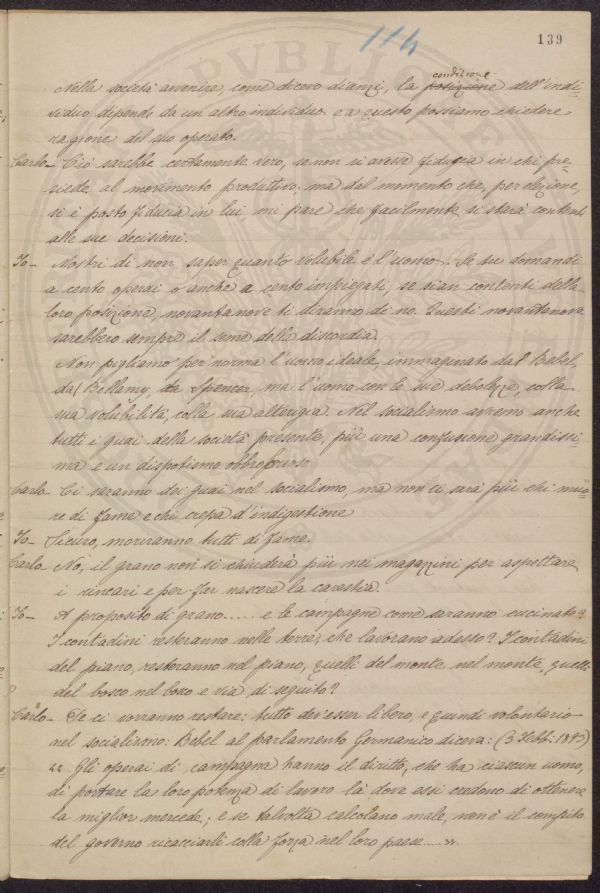 114
139
Nella società avvenire, come dicevo dianzi, la condizione dell'indi-
viduo dipende da un altro individuo e a questo possiamo chiedere
ragione del suo operato.
Carlo- Ciò sarebbe certamente vero, se non si avesse fiducia in chi pre-
siede al movimento produttivo: ma dal momento che, per elezione,
si è posto fiducia in lui, mi pare che facilmente si starà contenti
alle sue decisioni.
Io- Mostri di non saper quanto volubile è l'uomo. Se tu domandi
a cento operai o anche a cento impiegati, se sian contenti della
loro posizione, novantanove ti diranno di no. Questi novantanove
sarebbero sempre il seme della discordia.
Non pigliamo per norma l'uomo ideale, immaginato dal Bebel,
dal Bellamy, da Spencer, ma l'uomo con le sue debolezze, colla
sua volubilità, colla sua alterigia. Nel socialismo avremo anche
tutti i guai della società presente, più una confusione grandissi-
ma e un dispotismo obbrobrioso
Carlo- Ci saranno dei guai nel socialismo, ma non ci sarà più chi muo-
re di fame e chi crepa d'indigestione
Io- Sicuro, moriranno tutti di fame.
Carlo- No, il grano non si chiuderà più nei magazzini per aspettare
i rincari e per far nascere la carestia.
Io- A proposito di grano...... e le campagne come saranno cucinate?
I contadini resteranno nelle terre, che lavorano adesso? I contadini
del piano, resteranno nel piano, quelli del monte nel monte, quelli
del bosco nel bosco e via di seguito?
Carlo- Se ci vorranno restare: tutto dev'esser libero, e quindi volontario
nel socialismo: Bebel al parlamento Germanico diceva: (3 Febb: 1893)
« Gli operai di campagna hanno il diritto, che ha ciascun uomo,
di portare la loro potenza di lavoro là dove essi credono di ottenere
la miglior mercede; e se talvolta calcolano male, non è il compito
del governo ricacciarli colla forza nel loro paese.... »